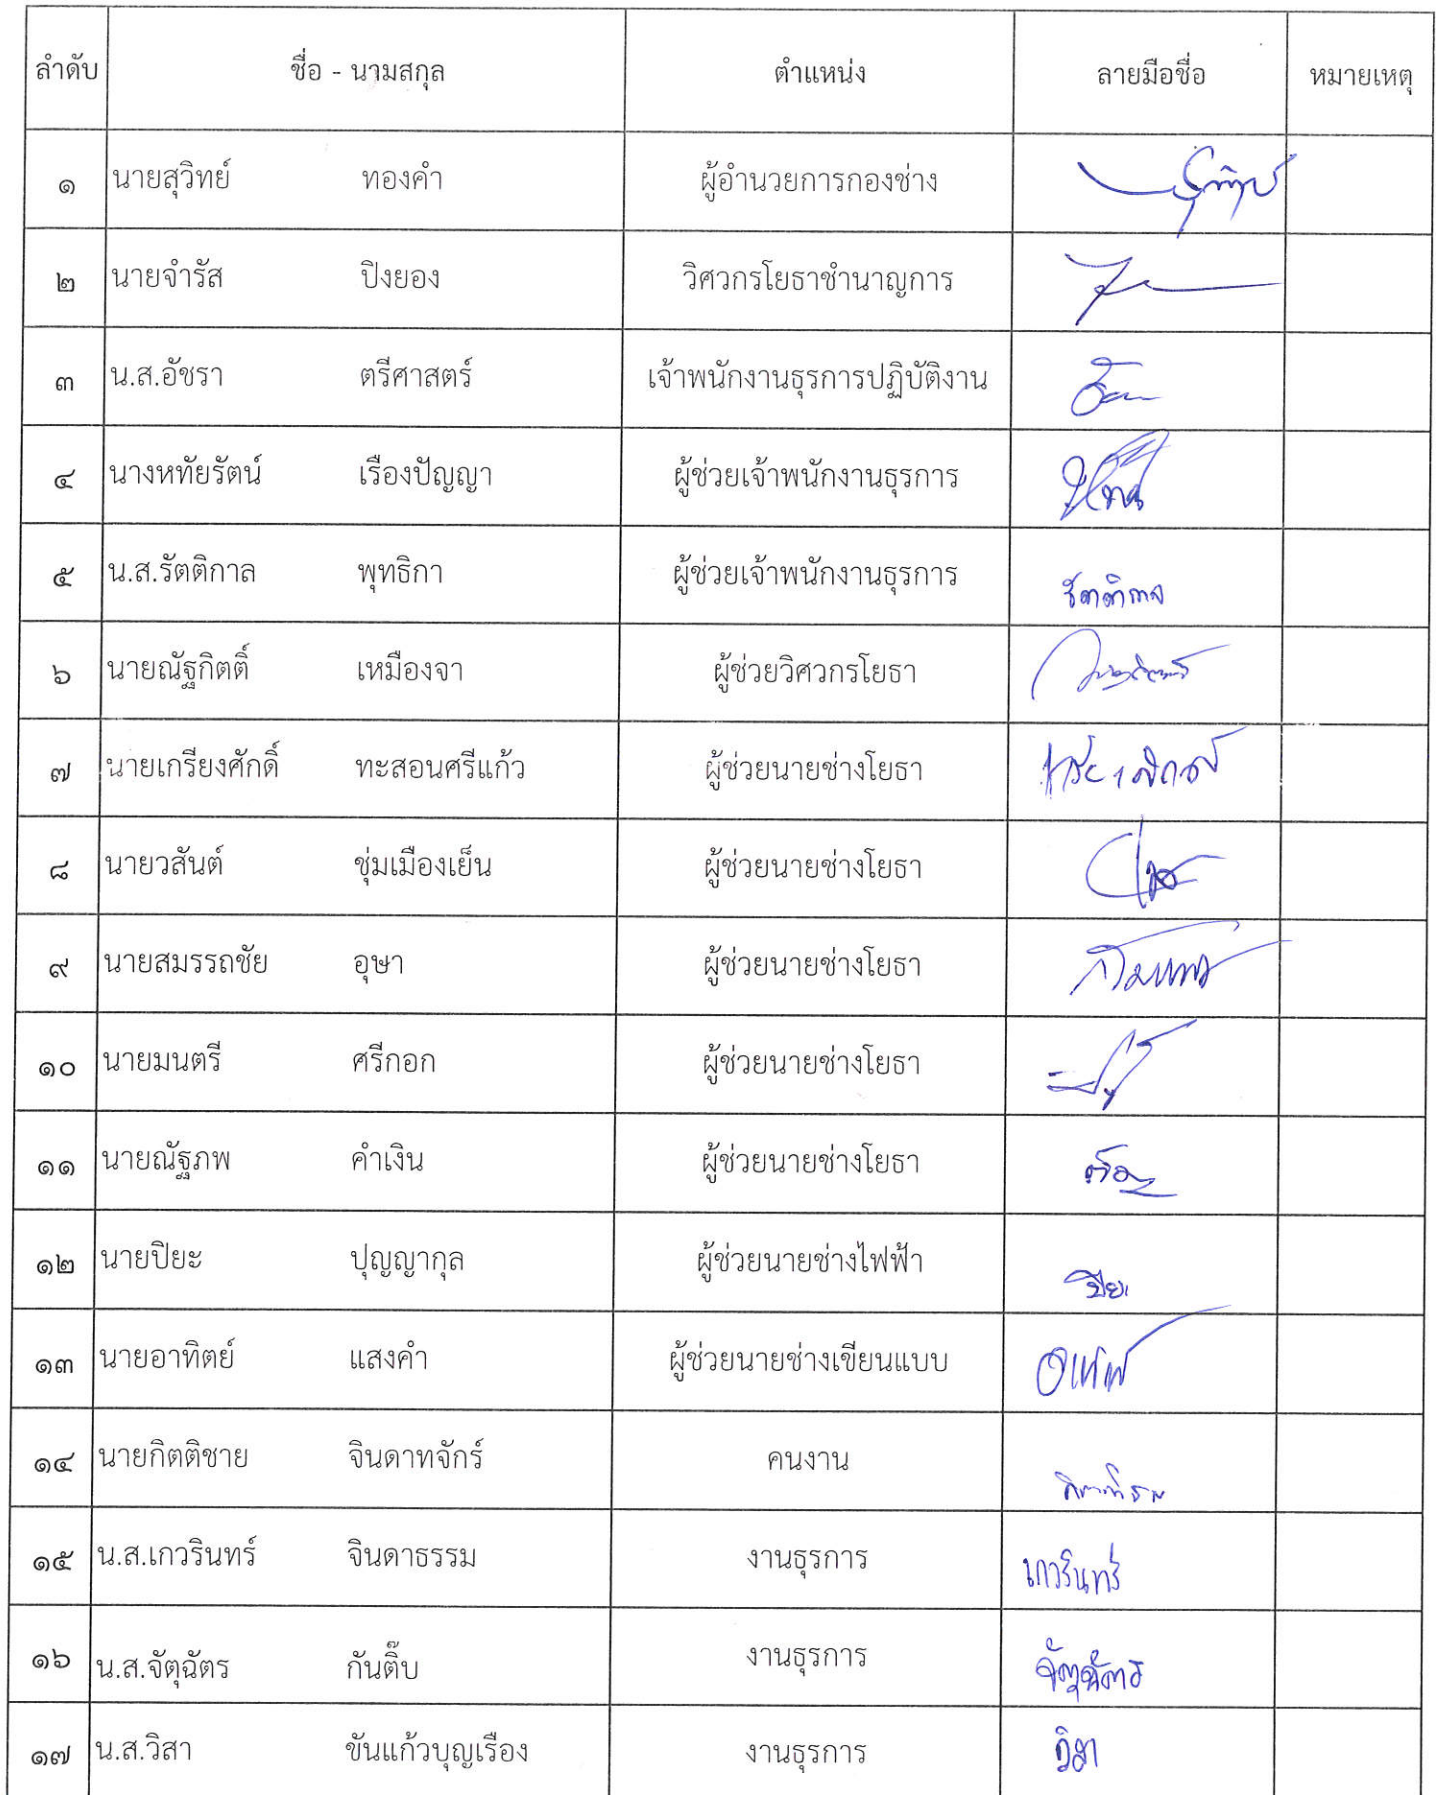 ลำดับ ชื่อ - นามสกุล ตำแหน่ง ลายมือชื่อ หมายเหตุ
๑ นายสุวิทย์ ทองคำ ผู้อำนวยการกองช่าง
๒ นายจำรัส ปิงยอง วิศวกรโยธาชำนาญการ
๓ น.ส.อัชรา ตรีศาสตร์ เจ้าพนักงานธุรการปฏิบัติงาน
๔ นางหทัยรัตน์ เรืองปัญญา ผู้ช่วยเจ้าพนักงานธุรการ
๕ น.ส.รัตติกาล พุทธิกา ผู้ช่วยเจ้าพนักงานธุรการ รัตติกาล
๖ นายณัฐกิตติ์ เหมืองจา ผู้ช่วยวิศวกรโยธา
๗ นายเกรียงศักดิ์ ทะสอนศรีแก้ว ผู้ช่วยนายช่างโยธา
๘ นายวสันต์ ชุ่มเมืองเย็น ผู้ช่วยนายช่างโยธา
๙ นายสมรรถชัย อุษา ผู้ช่วยนายช่างโยธา
๑๐ นายมนตรี ศรีกอก ผู้ช่วยนายช่างโยธา
๑๑ นายณัฐภพ คำเงิน ผู้ช่วยนายช่างโยธา
๑๒ นายปิยะ ปุญญากุล ผู้ช่วยนายช่างไฟฟ้า ปิยะ
๑๓ นายอาทิตย์ แสงคำ ผู้ช่วยนายช่างเขียนแบบ
๑๔ นายกิตติชาย จินดาทจักร์ คนงาน
๑๕ น.ส.เกวรินทร์ จินดาธรรม งานธุรการ เกวรินทร์
๑๖ น.ส.จัตุฉัตร กันติ๊บ งานธุรการ จัตุฉัตร
๑๗ น.ส.วิสา ขันแก้วบุญเรือง งานธุรการ วิสา